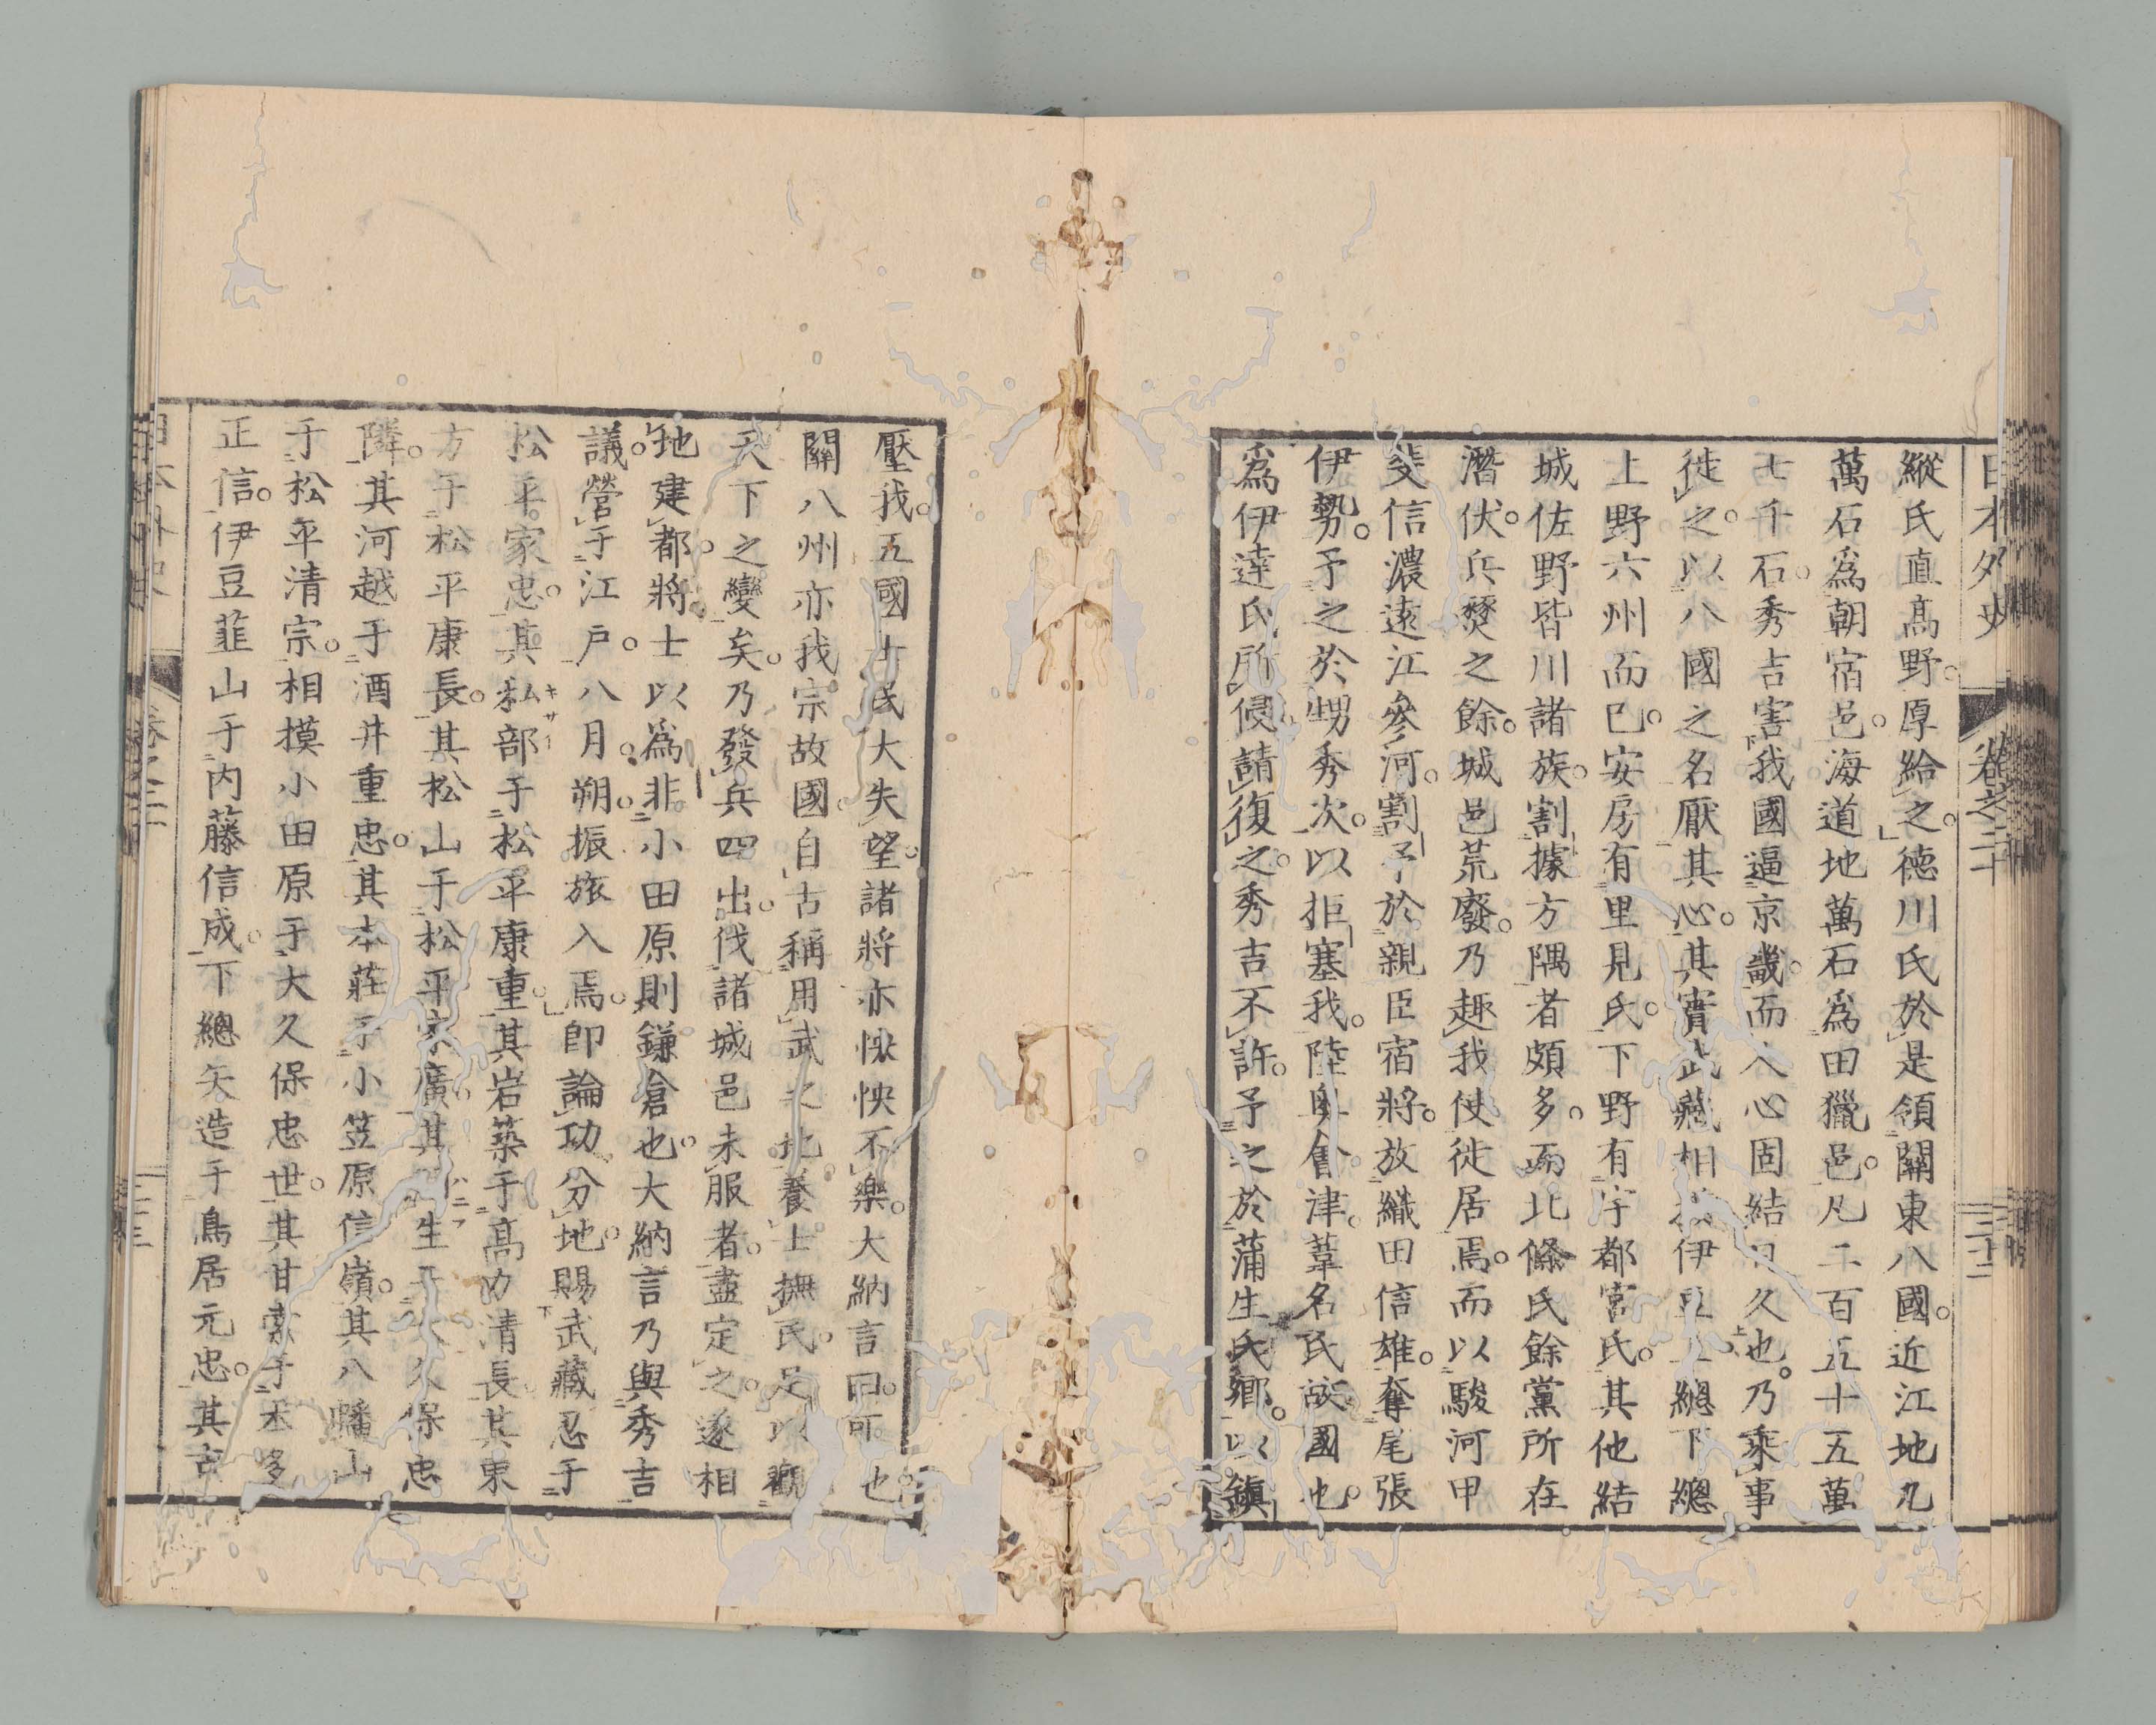 日本外史 卷之二十
縱氏直高野。厚給之。德川氏於是領關東八國。近江地九
萬石爲朝宿邑。海道地萬石爲田獵邑。凡二百五十五萬
七千石。秀吉害我國逼京畿。而人心固結日久也。乃乘事
徙之。以八國之名厭其心。其實武藏相模伊豆上總下總
上野六州而已。安房有里見氏。下野有宇都宮氏。其他結
城佐野皆川諸族。割據方隅者頗多。而北條氏餘黨所在
潛伏。兵燹之餘。城邑荒廢。乃趣我使徙居焉。而以駿河甲
斐信濃遠江參河。割予於親臣宿將。放織田信雄。奪尾張
伊勢。予之於甥秀次。以拒塞我。陸奧會津。葦名氏故國也。
爲伊達氏所侵。請復之。秀吉不許。予之於蒲生氏鄉。以鎭
壓我。五國士民大失望。諸將亦怏怏不樂。大納言曰。可也。
關八州亦我宗故國。自古稱用武之地。養士撫民。足以觀
天下之變矣。乃發兵四出。伐諸城邑未服者。盡定之。遂相
地建都。將士以爲非小田原則鎌倉也。大納言乃與秀吉
議。營于江戸。八月朔。振旅入焉。卽論功分地。賜武藏忍于
松平家忠。其私部于松平康重。其岩築于高力清長。其東
キサイ
方于松平康長。其松山于松平家廣。其生于大久保忠
ハニフ
隣。其河越于酒井重忠。其本莊于小笠原信嶺。其八幡山
于松平清宗。相摸小田原于大久保忠世。其甘索于本多
正信。伊豆韮山于内藤信成。下總矢造于鳥居元忠。其古